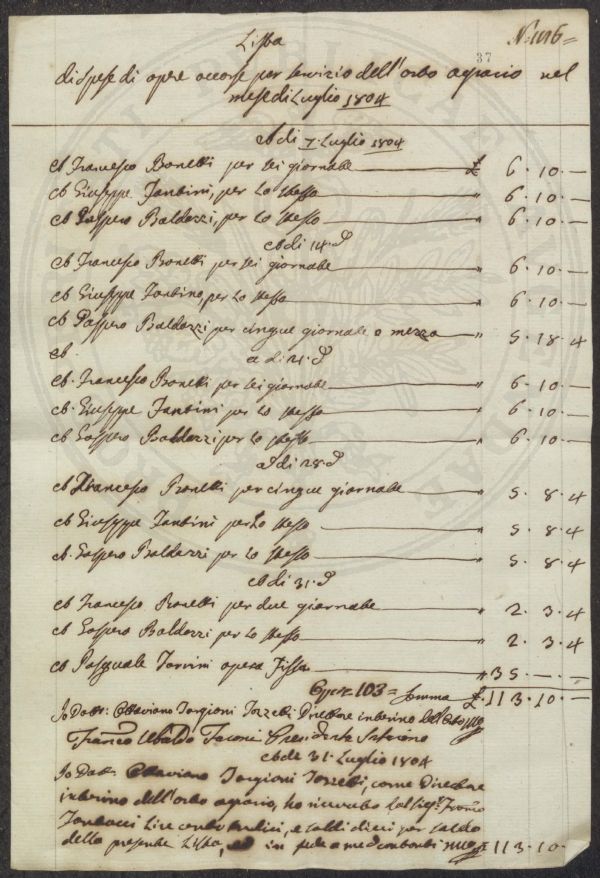 N.° 116 =
37
Lista
di spese di opere occorse per servizio dell'orto agrario nel
mese di Luglio 1804
A di 7. Luglio 1804
A Francesco Bonetti per sei giornate £ 6.10.—
A Giuseppe Fantini, per lo stesso " 6.10.—
A Gaspero Baldozzi, per lo stesso " 6.10.—
A di 14. d
A Francesco Bonetti per sei giornate " 6.10.—
A Giuseppe Fantino, per lo stesso " 6.10.—
A Gaspero Baldozzi per cinque giornate e mezza " 5.18.4
A
a di 21. d
A. Francesco Bonetti per sei giornate " 6.10.—
A. Giuseppe Fantini per lo stesso " 6.10.—
A Gaspero Baldozzi per lo stesso " 6.10.—
A di 28 d
A Francesco Bonetti per cinque giornate " 5.8.4
A Giuseppe Fantini per lo stesso " 5.8.4
A. Gaspero Baldozzi per lo stesso " 5.8.4
A di 31. d
A Francesco Bonetti per due giornate " 2.3.4
A Gaspero Baldozzi per lo stesso " 2.3.4
A Pasquale opera fissa " 35.—.—
Opere 103 = somma £. 113.10.—
Io Dott: Ottaviano Targioni Tozzetti Direttore interino dell'Orto
Franco Ubaldo Presidente Interino
A di 31. Luglio 1804
Io Dott: Ottaviano Targioni Tozzetti, come Direttore
interino dell'orto agrario, ho ricevuto dal Sig.
lire cento tredici, e soldi dieci per saldo
della presente Lista, ed in fede £ 113.10.